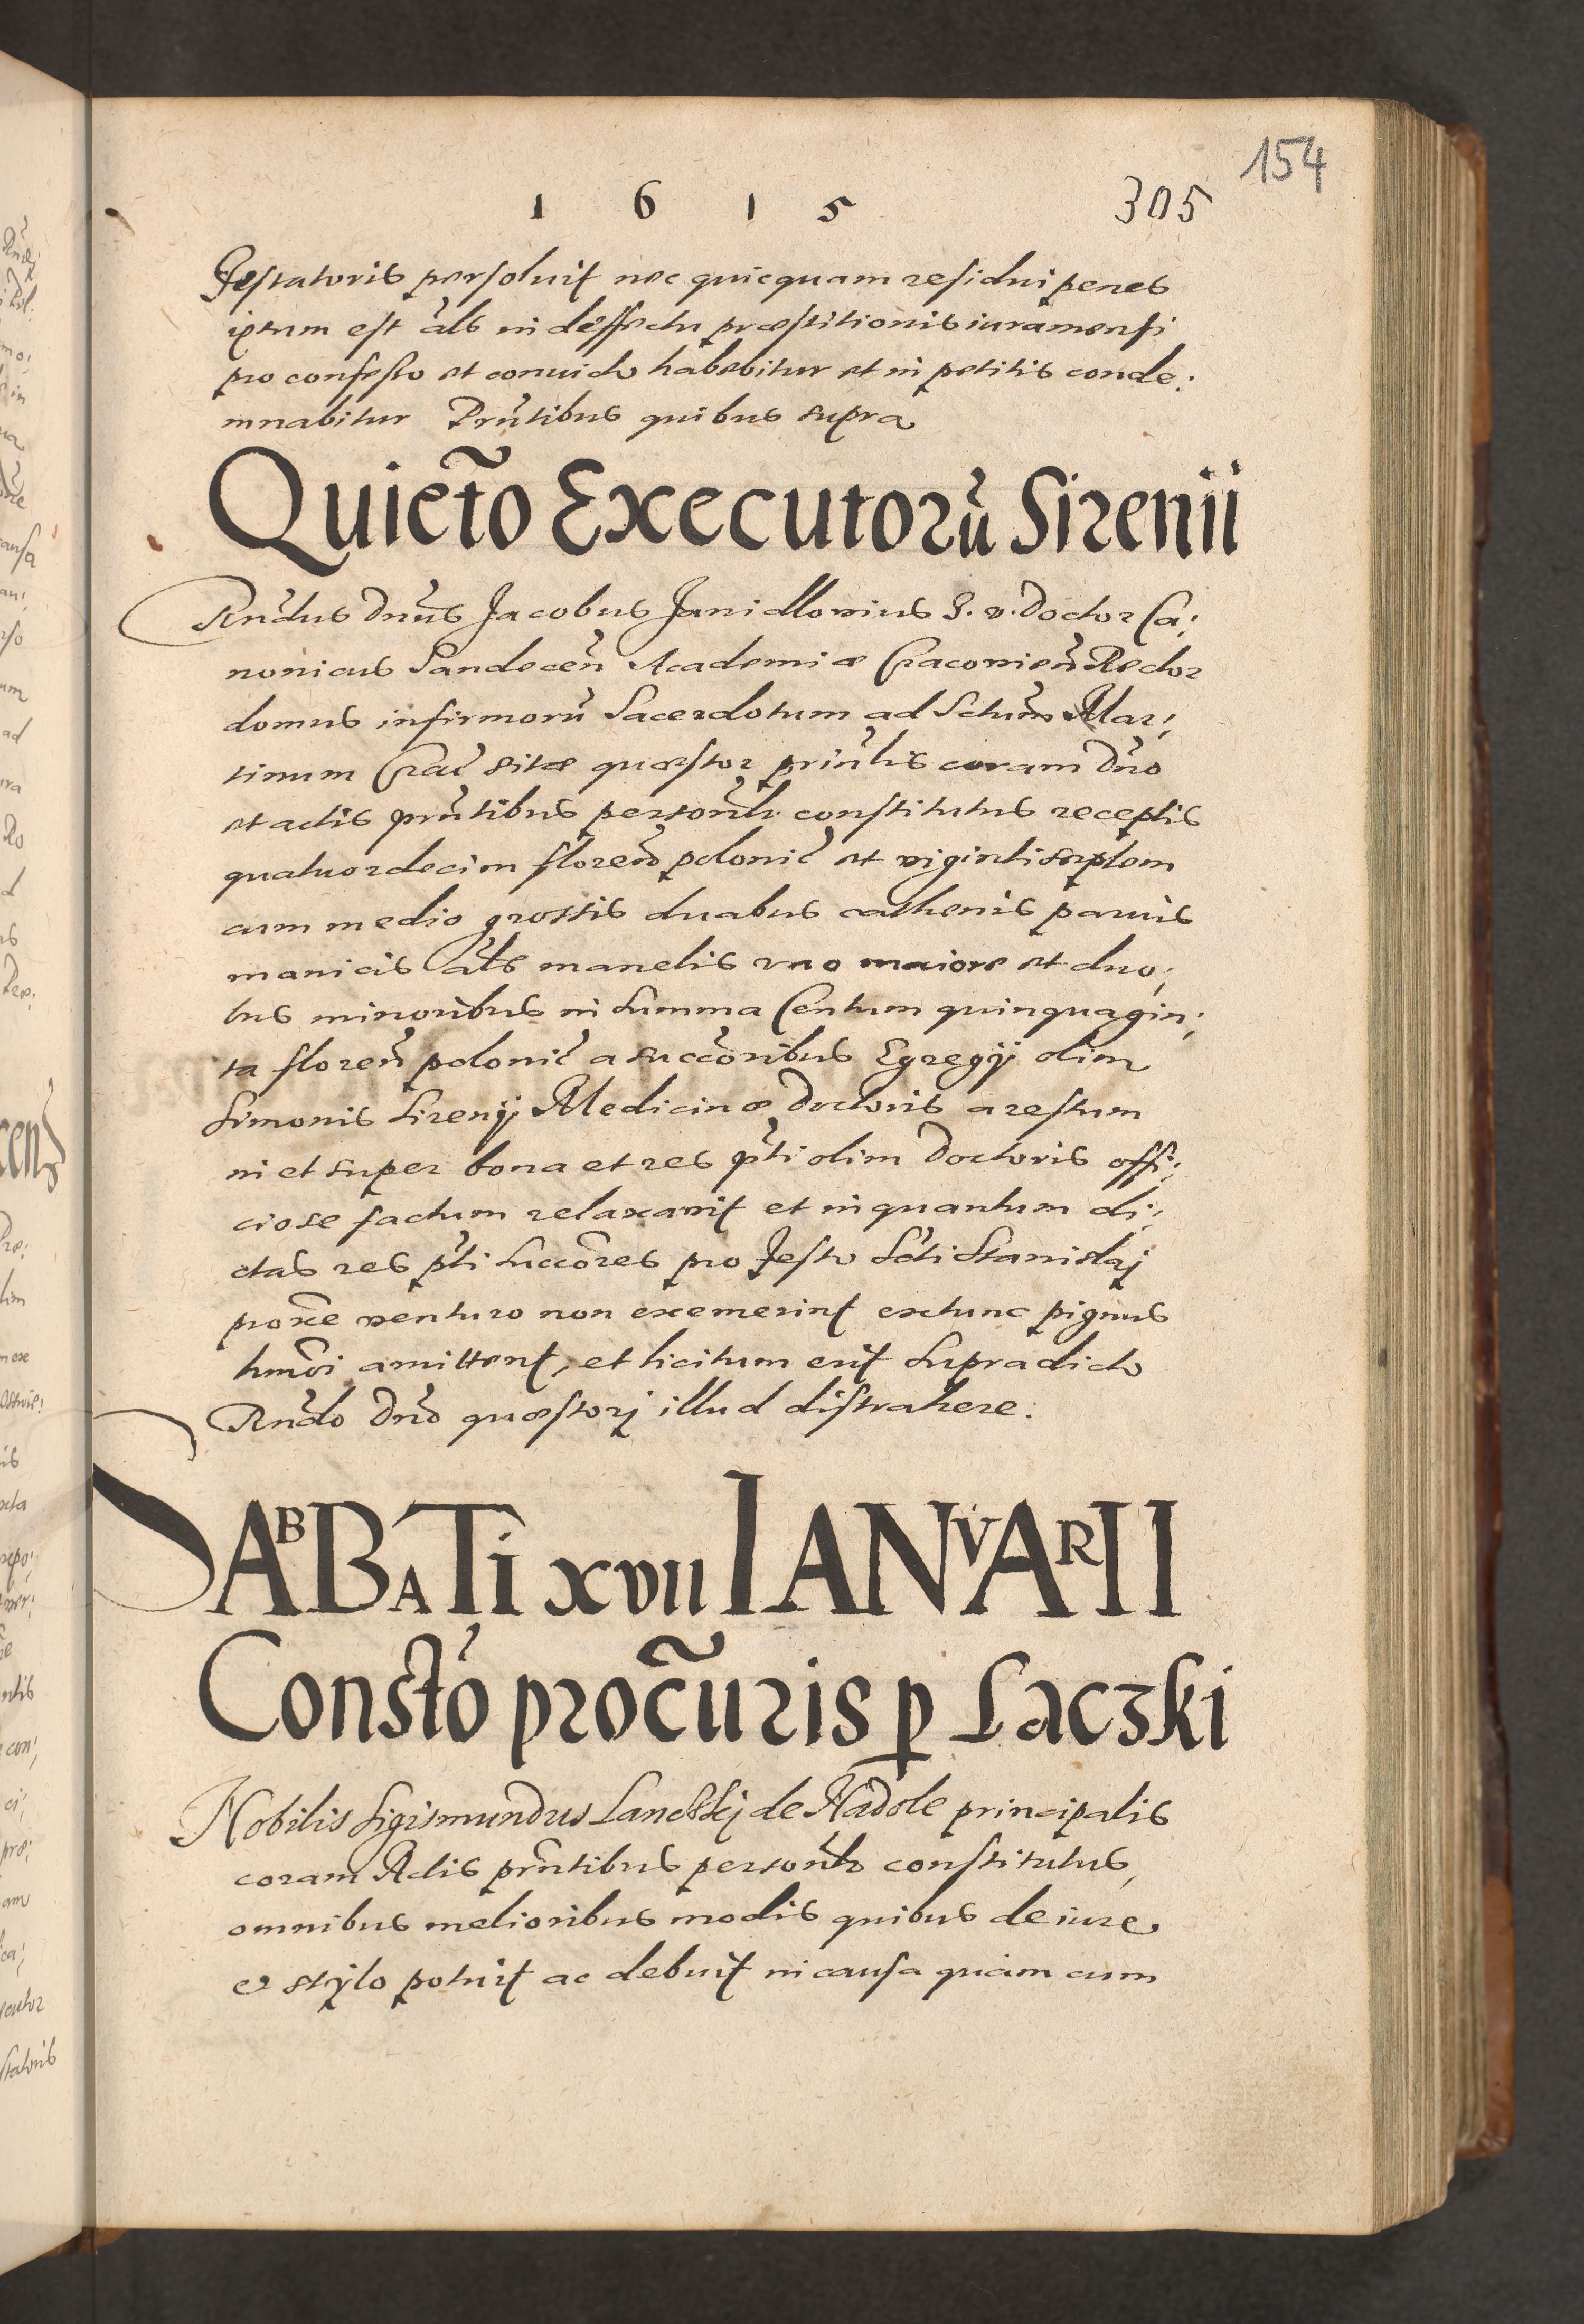 154
1 6 1 5 305
Testatoris persoluit nec quicquam residui penes
ipsum est als in deffectu præstitionis iuramenti
pro confesso et conuicto habebitur et in petitis conde:
mnabitur Prntibus quibus supra
Quietō Executorū Sirenii
Rndus dnus Jacobus Janidllouius J. v. Doctor Ca:
nonicus Sandecen Academiæ Cracouien Rector
domus infirmorū Sacerdotum ad Sctum Mar:
tinum Crac sitæ quæstor prinlis coram dno
et actis prntibus personlr constitutus receptis
quatuordecim floren polonic et viginti septem
cum medio grossis duabus cathenis paruis
manicis als manelis vno maiore et duo:
bus minoribus in summa Centum quinquagin:
ta floren polonic a succoribus Egregij olim
Simonis Sirenij Medicinæ Doctoris arestum
in et super bona et res pti olim Doctoris offi:
ciose factum relaxauit et in quantum di:
ctas res pti succores pro festo Scti Stanislaj
proxe venturo non exemerint extunc pignus
hmoi amittent, et licitum erit supradicto
Rndo Dno quæstorj illud distrahere.
SABBATi xvii IANVARII
Constō procuris p Laczki
Nobilis Sigismundus Lanczkj de Nadole principalis
coram Actis prntibus personlr constitutus,
omnibus melioribus modis quibus de iure
et stylo potuit ac debuit in causa quam cum